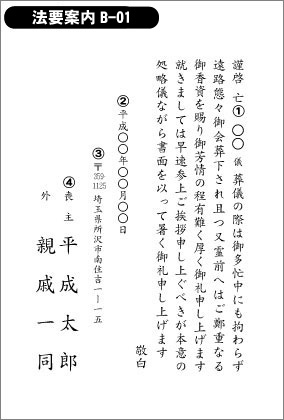 法要案内 B-01
謹啓 亡①○○儀 葬儀の際は御多忙中にも拘わらず
遠路態々御会葬下され且つ又霊前へはご鄭重なる
御香資を賜り御芳情の程有難く厚く御礼申し上げます
就きましては早速参上ご挨拶申し上ぐべきが本意の
処略儀ながら書面を以って暑く御礼申し上げます
敬白
②平成○○年○○月○○日
③〒359-1125 埼玉県所沢市南住吉一ー一五
④喪主 平成太郎
外 親戚一同